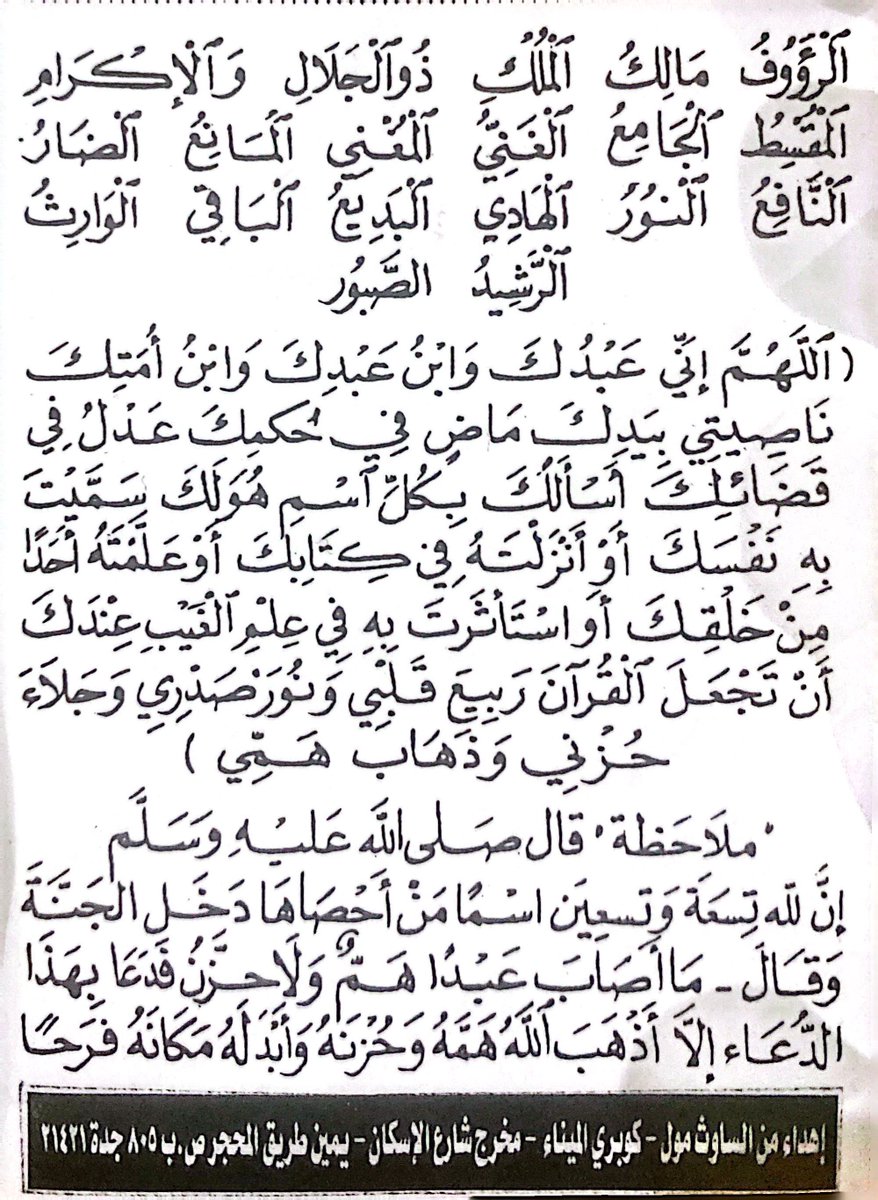 ٱلْرَؤُوفُ مَالِكُ ٱلْمُلْكِ ذُوٱلْجَلَالِ وَٱلْإِكْرَامِ
ٱلْمُقْسِطُ ٱلْجَامِعُ ٱلْغَنِيُّ ٱلْمُغْنِي ٱلْمَانِعُ ٱلْضَارُ
ٱلْنَّافِعُ ٱلْنُورُ ٱلْهَادِي ٱلْبَدِيعُ ٱلْبَاقِي ٱلْوَارِثُ
ٱلْرَّشِيدُ الصَّبُور
( ٱللَّهُمَّ إِنِّي عَبْدُكَ وَابْنُ عَبْدِكَ وَابْنُ أَمَتِكَ
نَاصِيتِي بِيَدِكَ مَاضٍ فِي حُكمِكَ عَدْلُ فِي
قَضَائِكَ أَسْأَلُكَ بِكُلِّ ٱسْمٍ هُوَلَكَ سَمَّيْتَ
بِهِ نَفْسَكَ أَوْ أَنْزَلْتَهُ فِي كِتَابِكَ أَوْعَلَّمْتَهُ أَحَدًا
مِنْ خَلْقِكَ أَوِاسْتَأثَرتَ بِهِ فِي عِلْمِ ٱلْغَيْبِ عِنْدَكَ
أَنْ تَجْعَلَ ٱلْقُرآنَ رَبِيعَ قَلْبِي وَنُورَصَدْرِي وَجَلاَءَ
حُزْنِي وَذَهَابَ هَمِّي )
"ملاَحَظة" قال صَلى اللَّه عَليْهِ وَسَلَّم
إنَّ للّه تِسعَة وَتسعِيَن اسْمًا مَنْ أَحْصَاهَا دَخَل الجَنَّةَ
وَقَالَ - مَا أَصَابَ عَبْدًا هَمٌّ وَلَاحزَنٌ فَدَعَا بِهَذَا
الدُّعَاء إلاَّ أَذْهَبَ ٱللَّهُ هَمَّهُ وَحُزْنَهُ وَأَبْدَلَهُ مَكَانَهُ فَرَحًا
إهداء من الساوث مول - كوبري الميناء - مخرج شارع الإسكان - يمين طريق المحجر ص.ب ٨٠٥ جدة ٢١٤٢١